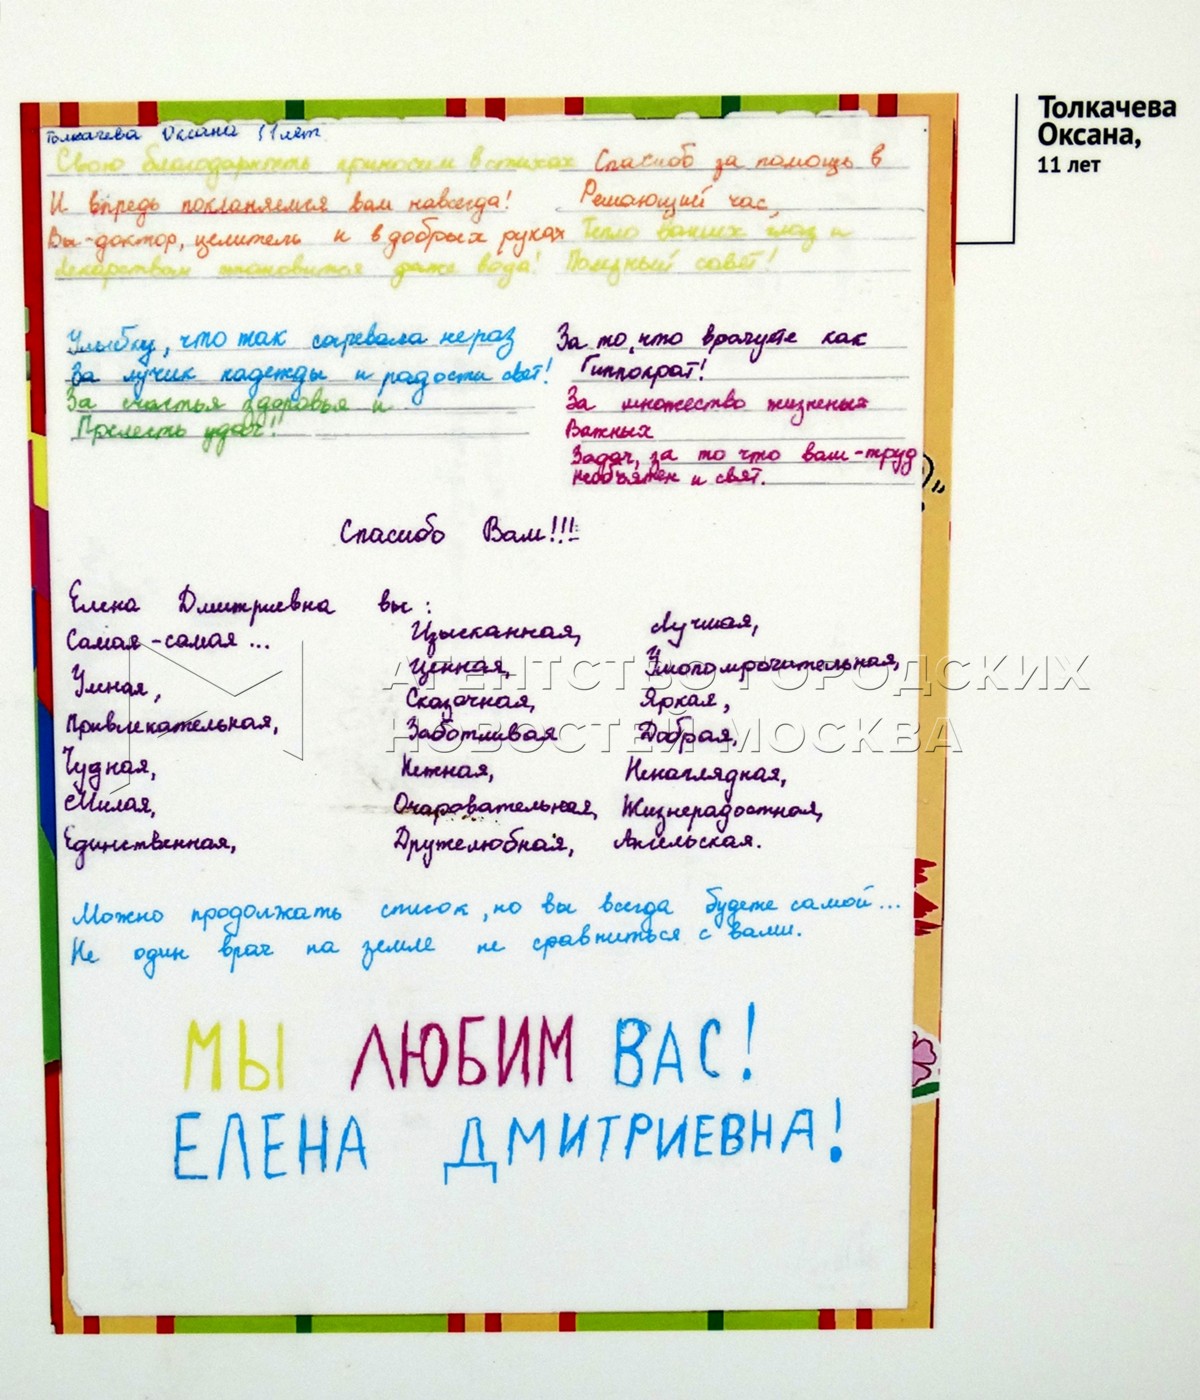 Толкачева Оксана 11 лет
Свою благодарность приносим в стихах
И впредь поклоняемся вам навсегда!
Вы-доктор, целитель и в добрых руках
Лекарством становится даже вода!
Спасиоб за помощь в
Решающий час,
Тепло ваших глаз и
Полезный совет!
Улыбку, что так согревала не раз
За лучик надежды и радости свет!
За счастья здоровья и
Прелесть удач!
За то, что врачуете как
Гиппократ!
За множество жизненых
Важных
Задач, за то что вам-труд
необъятен и свят.
Спасибо Вам!!!
Елена Дмитриевна вы:
Самая-самая...
Умная,
Привлекательная,
Чудная,
Милая,
Единственная,
Изысканная,
Ценная,
Сказочная,
Заботливая
Нежная,
Очаровательная,
Дружелюбная,
Лучшая,
Умопомрачительная,
Яркая,
Добрая,
Ненаглядная,
Жизнерадостная,
Ангельская.
Можно продолжать список, но вы всегда будете самой...
Не один врач на земле не сравниться с вами.
МЫ ЛЮБИМ ВАС!
ЕЛЕНА ДМИТРИЕВНА!
Толкачева
Оксана,
11 лет
АГЕНТСТВО ГОРОДСКИХ
НОВОСТЕЙ МОСКВА